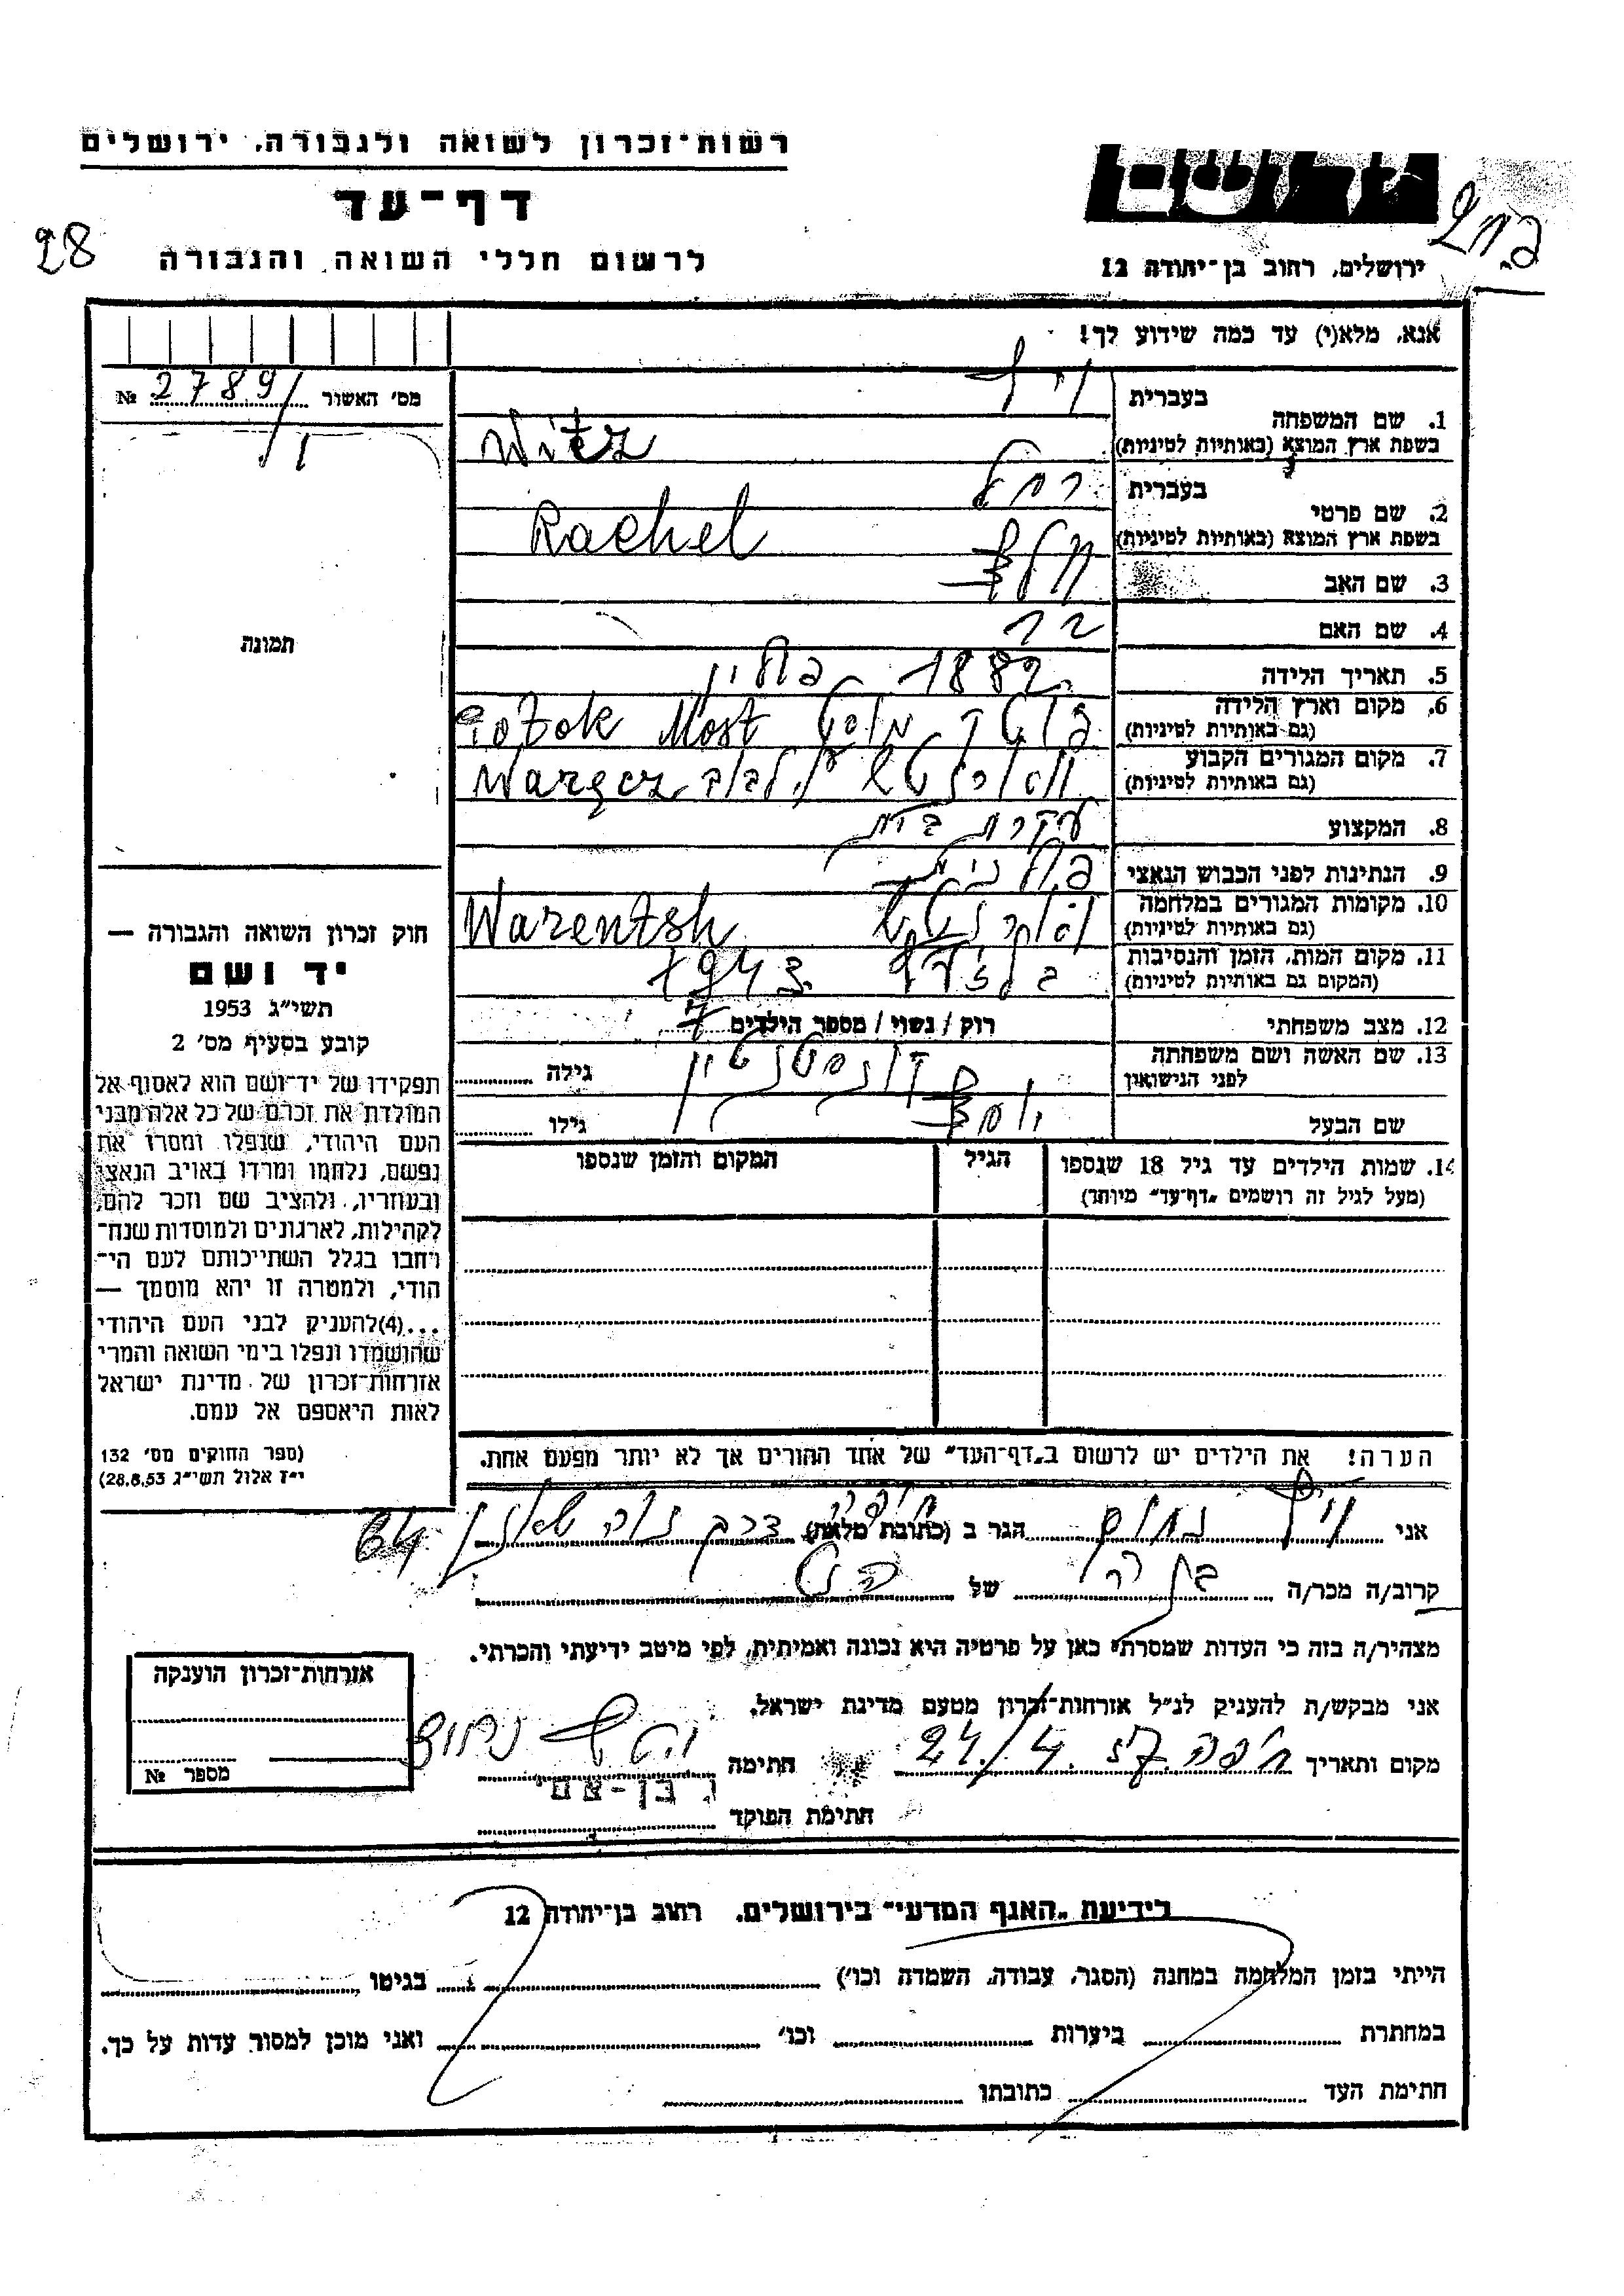 רשות־זכרון לשואה ולגבורה, ירושלים
דף־עד
לרשום חללי השואה והגבורה
28
ירושלים, רחוב בן־יהודה 12
אנא, מלא(י) עד כמה שידוע לך!
מס׳ האשור № 2789
תמונה
חוק זכרון השואה והגבורה —
יד ושם
תשי״ג 1953
קובע בסעיף מס׳ 2
תפקידו של יד־ושם הוא לאסוף אל
המולדת את זכרם של כל אלה מבני
העם היהודי, שנפלו ומסרו את
נפשם, נלחמו ומרדו באויב הנאצי
ובעוזריו, ולהציב שם וזכר להם,
לקהילות, לארגונים ולמוסדות שנח־
רבו בגלל השתייכותם לעם הי־
הודי, ולמטרה זו יהא מוסמך —
...(4)להעניק לבני העם היהודי
שהושמדו ונפלו בימי השואה והמרי
אזרחות־זכרון של מדינת ישראל
לאות היאספם אל עמם.
(ספר החוקים מס׳ 132
י״ז אלול תשי״ג 28.8.53)
1. שם המשפחה
בעברית
בשפת ארץ המוצא (באותיות לטיניות) Witz
2. שם פרטי
בעברית רחל
בשפת ארץ המוצא (באותיות לטיניות) Rachel
3. שם האב
4. שם האם
5. תאריך הלידה 1882
6. מקום וארץ הלידה
(גם באותיות לטיניות) Potok Most
7. מקום המגורים הקבוע
(גם באותיות לטיניות) Waręcz
8. המקצוע עקרת בית
9. הנתינות לפני הכבוש הנאצי פולנית
10. מקומות המגורים במלחמה
(גם באותיות לטיניות) Warentsh
11. מקום המות, הזמן והנסיבות 1943
(המקום גם באותיות לטיניות)
12. מצב משפחתי רוק / נשוי / מספר הילדים 7
13. שם האשה ושם משפחתה
לפני הנישואין גילה
שם הבעל גילו
14. שמות הילדים עד גיל 18 שנספו הגיל המקום והזמן שנספו
(מעל לגיל זה רושמים „דף־עד״ מיוחד)
הערה! את הילדים יש לרשום ב„דף־העד״ של אחד ההורים אך לא יותר מפעם אחת.
אני הגר ב (כתובת מלאה) חיפה דרך 64
קרוב/ה מכר/ה של
מצהיר/ה בזה כי העדות שמסרתי כאן על פרטיה היא נכונה ואמיתית, לפי מיטב ידיעתי והכרתי.
אני מבקש/ת להעניק לנ״ל אזרחות־זכרון מטעם מדינת ישראל.
מקום ותאריך חיפה 24/4.57 חתימה
חתימת הפוקד
אזרחות־זכרון הוענקה
מספר №
לידיעת „האגף המדעי״ בירושלים, רחוב בן־יהודה 12
הייתי בזמן המלחמה במחנה (הסגר, עבודה, השמדה וכו׳) בגיטו
במחתרת ביערות וכו׳ ואני מוכן למסור עדות על כך.
חתימת העד כתובתו